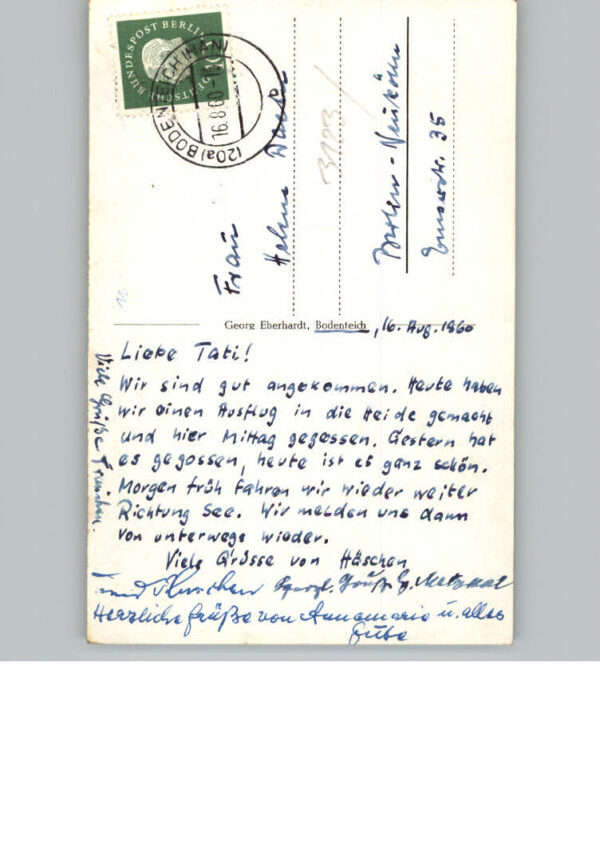 DEUTSCHE BUNDESPOST BERLIN
(20a) BODENTEICH (HAN)
16.8.60
Frau
Helene
Berlin-Neukölln
Emserstr. 35
3123/
Georg Eberhardt, Bodenteich, 16. Aug. 1960
Liebe Tati!
Wir sind gut angekommen. Heute haben
wir einen Ausflug in die Heide gemacht
und hier Mittag gegessen. Gestern hat
es gegossen, heute ist es ganz schön.
Morgen früh fahren wir wieder weiter
Richtung See. Wir melden uns dann
von unterwegs wieder.
Viele Grüsse von Häschen
und
Herzliche Grüße von Annamarie u. alles
Gute
Viele Grüße